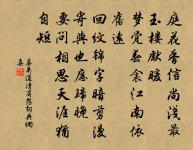 庭花香信尚淺最
玉樓先暖
夢覺春衾江南依
舊遠
回紋錦字暗剪漫
寄與也應歸晚
要問相思天涯猶
自短
晏幾道清商怨